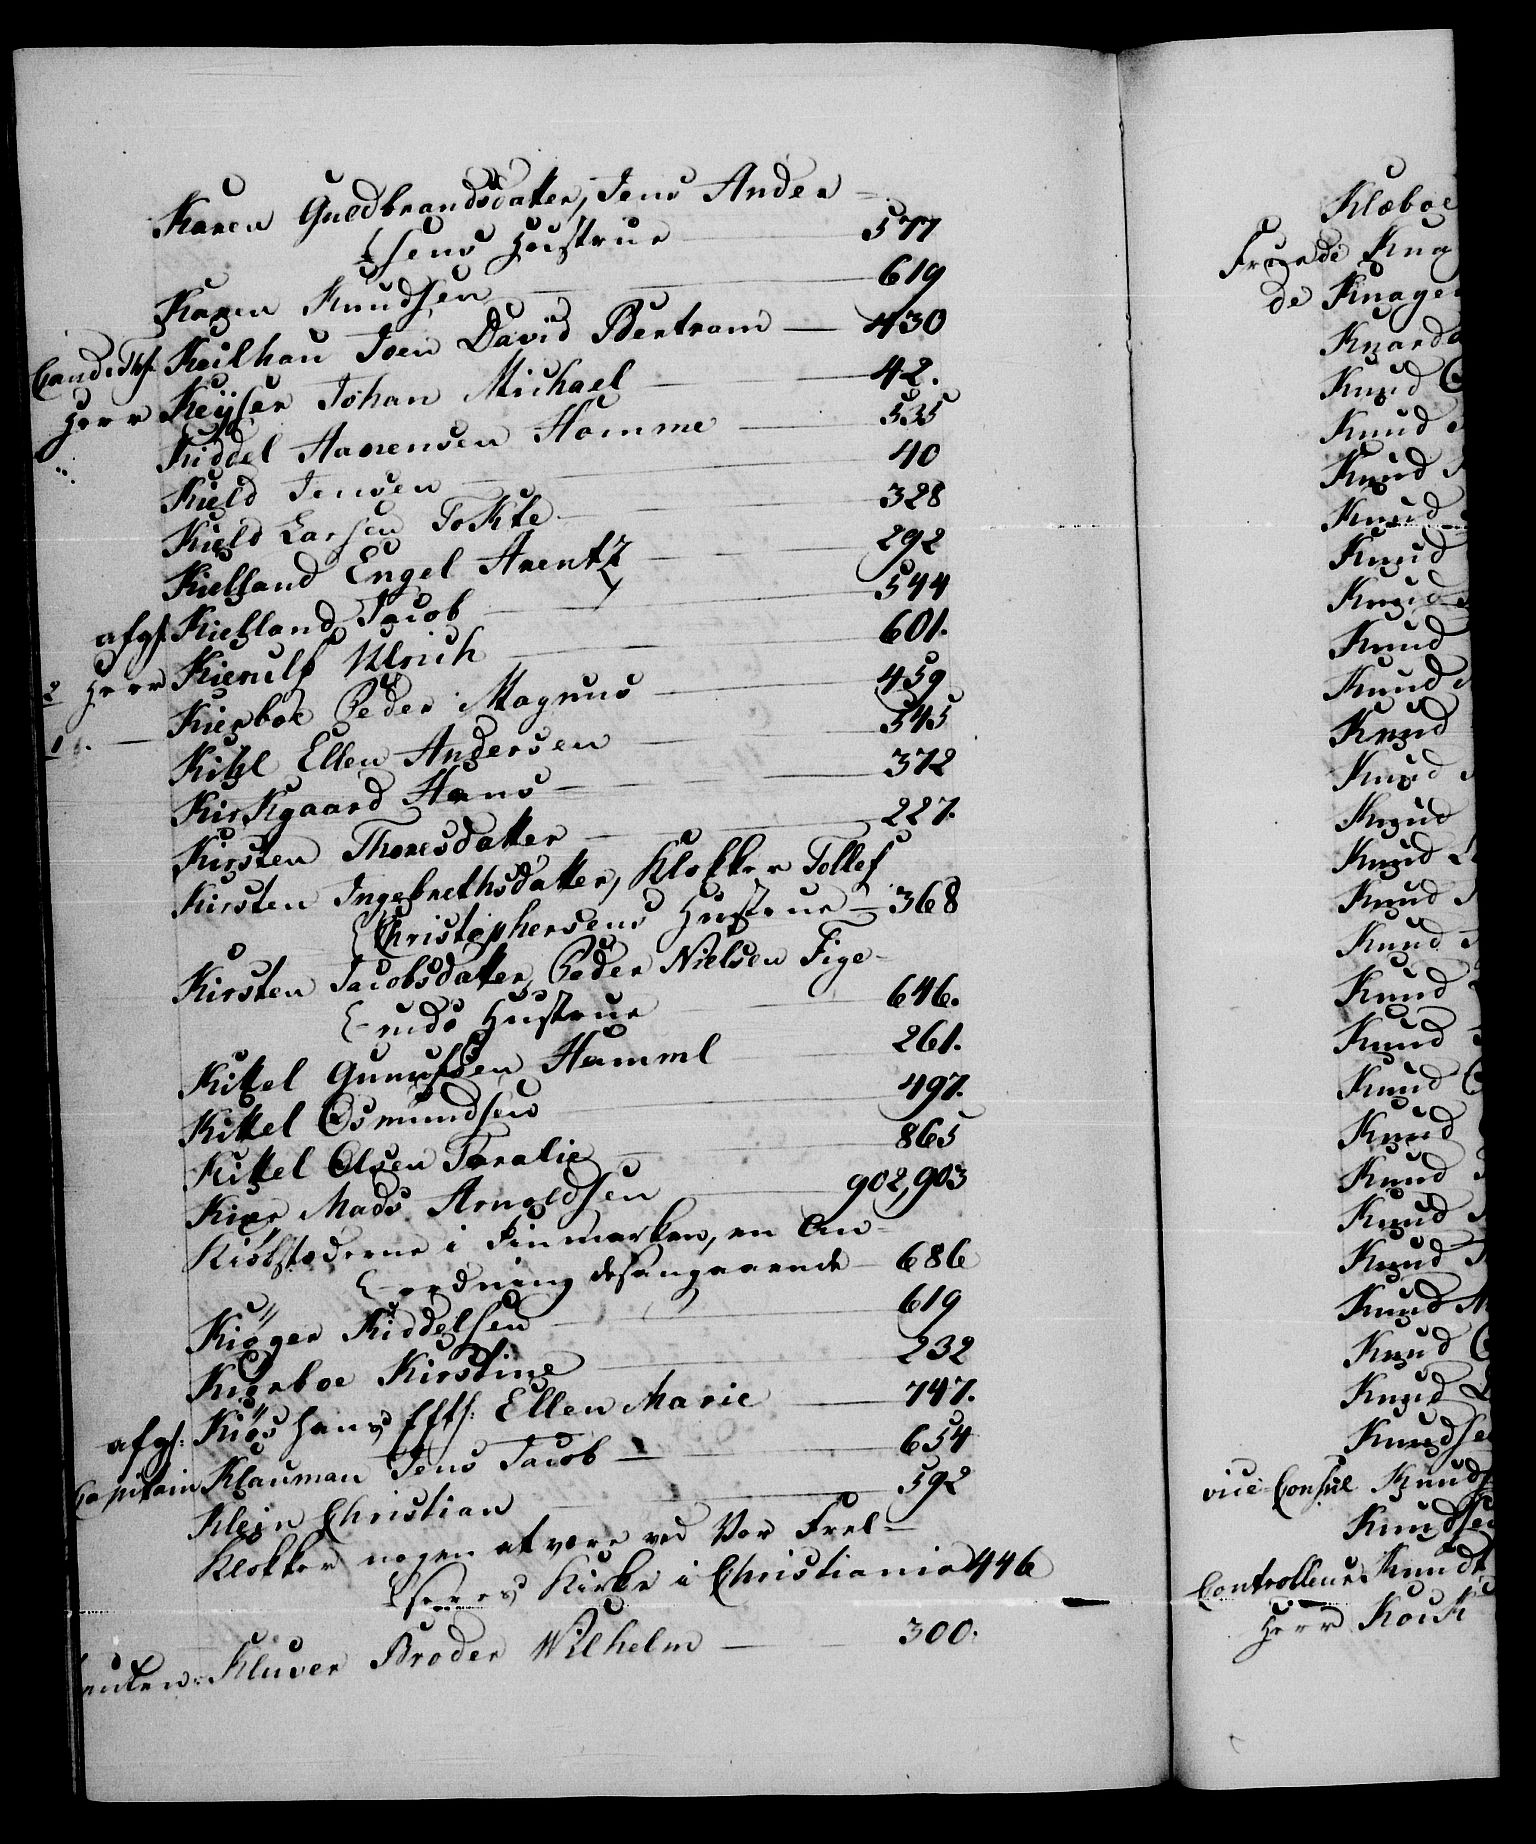 Karen Guldbrandsdatter, Jens Ander-
sens Hustrue 577
Karen Knudsen 619
Cand: Th: Keilhau Joen David Bertram — 430
Herr Keyser Johan Michael 42.
Kiddel Aanensen Homme 535
Kield Jensen 40
Kield Larsen Tokle 328
Kielland Engel Arentz 292
afg: Kielland Jacob 544
2 Herr Kierulf Ulrich 601.
1 Kierboe Peder Magnus 459
Kihl Ellen Andersen 545
Kirkgaard Hans 372
Kirsten Thoresdatter 227.
Kirsten Ingebrethsdatter, Klokker Tollef
Christophersens Hustrue — 368
Kirsten Jacobsdatter, Peder Nielsen Fige-
ruds Hustrue 646.
Kittel Gunulfsen Hamml 261.
Kittel Osmundsen 497.
Kittel Olsen Taralie 865
Kiær Mads Arnoldsen 902,903
Kiöbstæderne i Finmarken, en An-
ordning desangaaende 686
Kiöger Kiddelsen 619
Kierboe Kirstine 232
afg: Kiös Hans Eftl: Ellen Marie 747.
Capitain Klauman Jens Jacob 654
Klein Christian 592
Klokker nogen at være ved Vor Frel-
sers Kirke i Christiania 446
Kluver Broder Wilhelm 300.
Klæboe
Fruende Kna
de Knage
Knard
Knud
Knud
Knud
Knud
Knud
Knud
Knud
Knud
Knud
Knud
Knud
Knud
Knud
Knud
Knud
Knud
Knud
Knud
Knud
Knud
Knud
Knud
Knud
Knud
Knudse
vice-Consul Knuds
Knudsen
Controlleur Knudt
Herr Kock